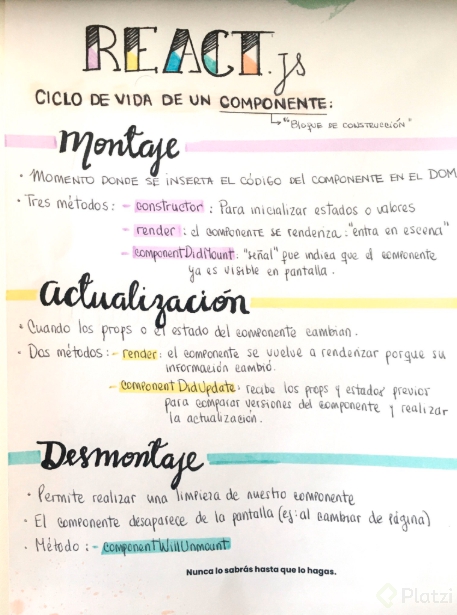 REACT.js
CICLO DE VIDA DE UN COMPONENTE:
"BLOQUE DE CONSTRUCCIÓN"
Montaje
• MOMENTO DONDE SE INSERTA EL CÓDIGO DEL COMPONENTE EN EL DOM
• Tres métodos: - constructor: Para inicializar estados o valores
- render: el componente se renderiza: "entra en escena"
- componentDidMount: "señal" que indica que el componente
ya es visible en pantalla.
Actualización
• Cuando los props o el estado del componente cambian.
• Dos métodos: - render: el componente se vuelve a renderizar porque su
información cambió.
- componentDidUpdate: recibe los props y estados previos
para comparar versiones del componente y realizar
la actualización.
Desmontaje
• Permite realizar una limpieza de nuestro componente
• El componente desaparece de la pantalla (ej: al cambiar de página)
• Método: - componentWillUnmount
Nunca lo sabrás hasta que lo hagas.
Platzi